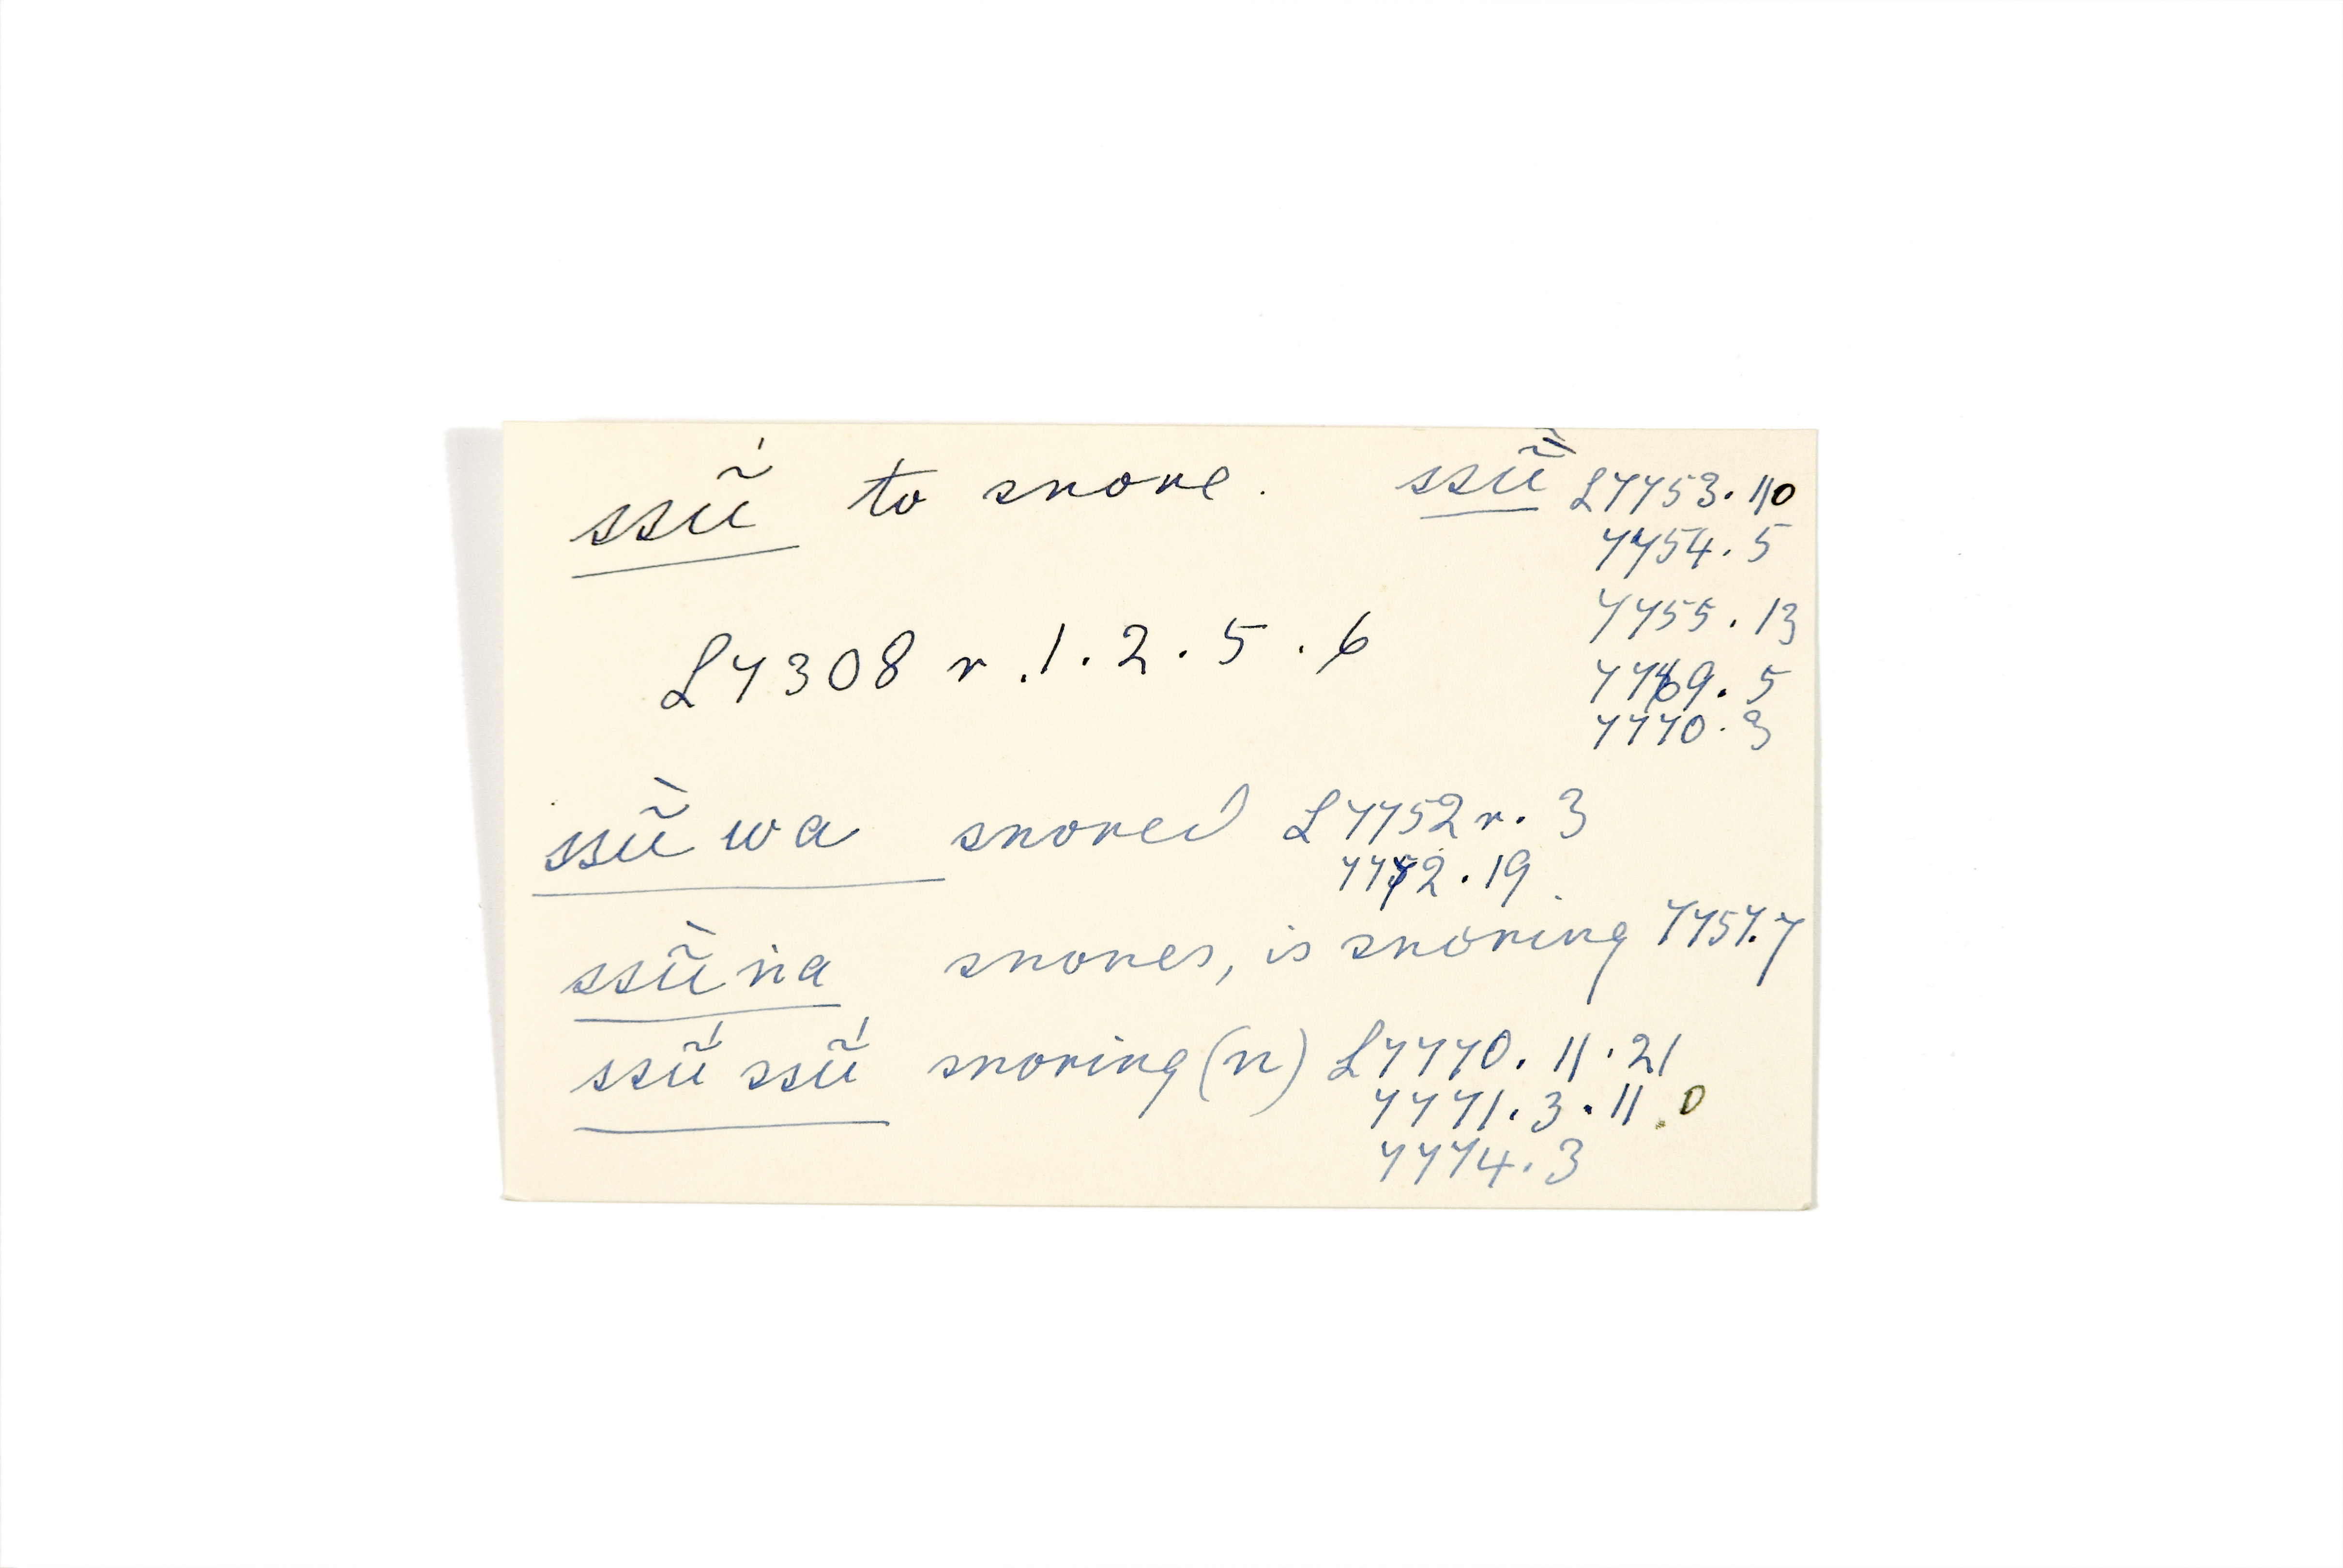 ssü̃́ to snore. ssü̃̀ L7753.110
7754.5
7755.13
L7308 r .1.2.5.6
7769.5
7770.3
ssü̃̀ wa snored L7752r.3
7772.19
ssü̃̀ na snores, is snoring 7757.7
ssü̃́ ssü̃́ snoring (n) L7770.11.21
7771.3.11.0
7774.3